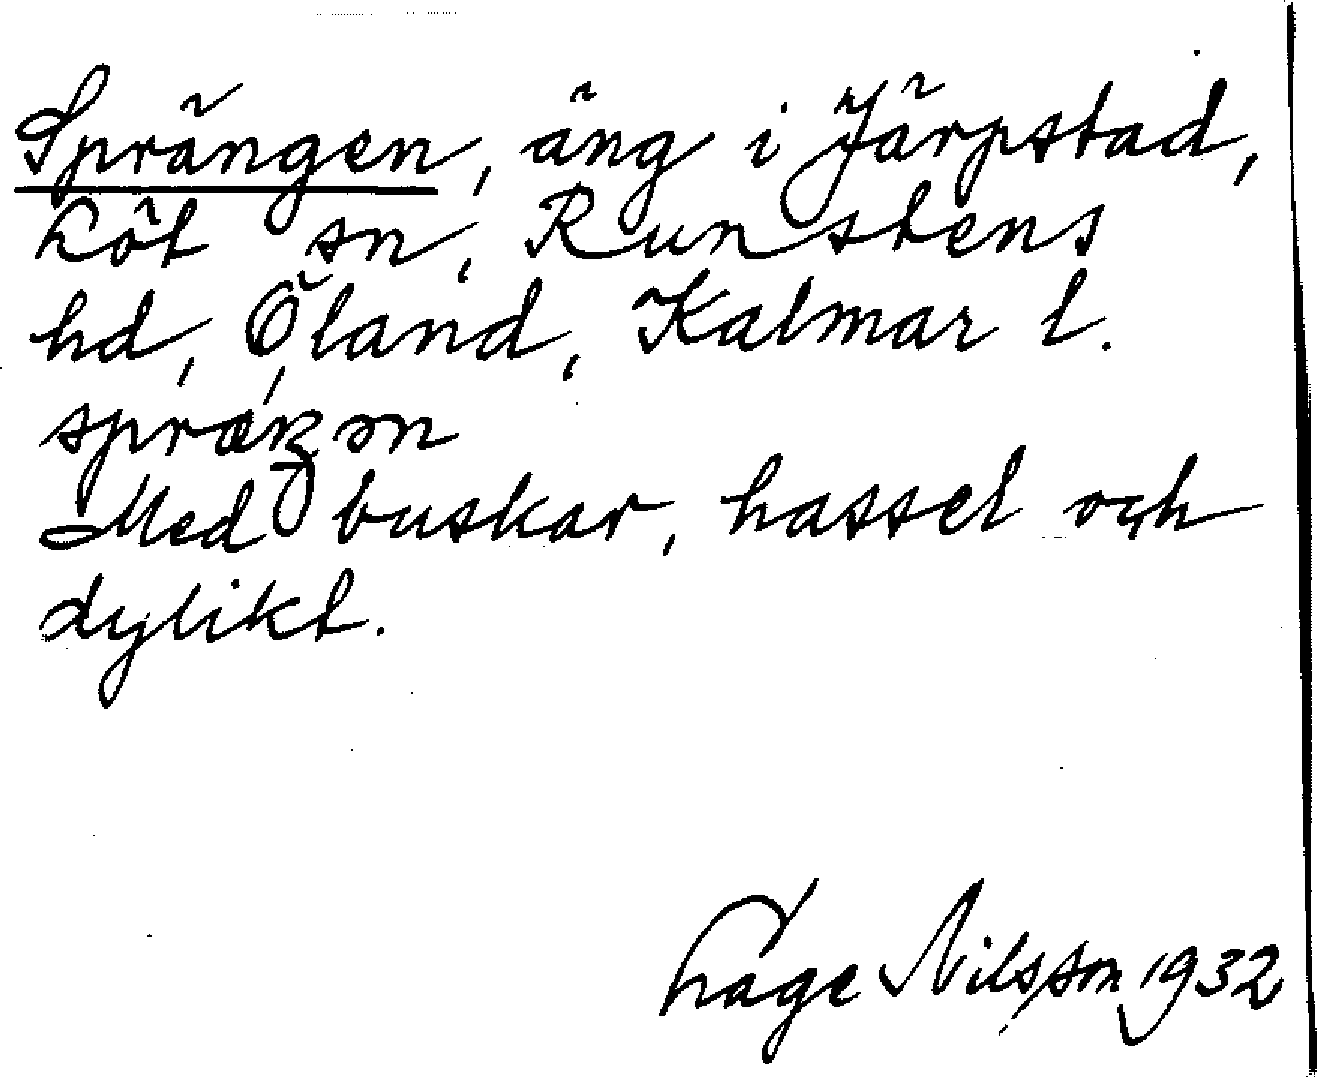 Sprängen, äng i Järpstad,
Löt sn, Runstens
hd, Öland, Kalmar l.
Med buskar, hassel och
dylikt.
Lage Nilsson 1932